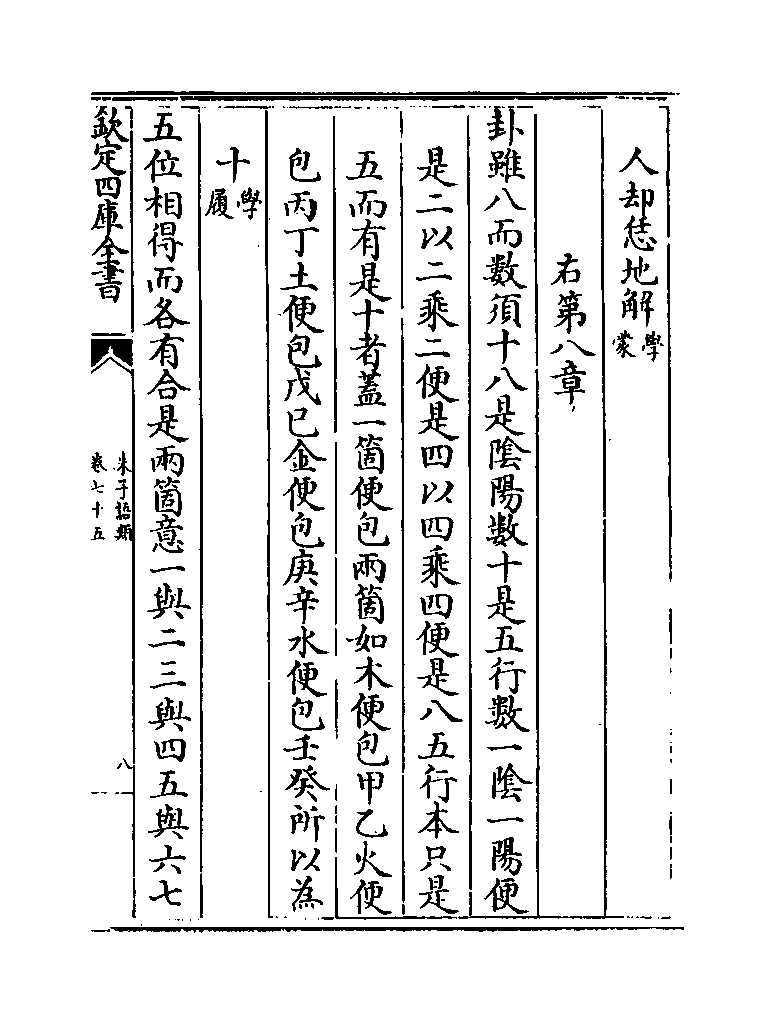 人却恁地解學蒙
右第八章
卦雖八而數須十八是陰陽數十是五行數一陰一陽便
是二以二乘二便是四以四乘四便是八五行本只是
五而有是十者蓋一箇便包兩箇如木便包甲乙火便
包丙丁土便包戊巳金便包庚辛水便包壬癸所以為
十學履
五位相得而各有合是兩箇意一與二三與四五與六七
欽定四庫全書
朱子語類
卷七十五
八